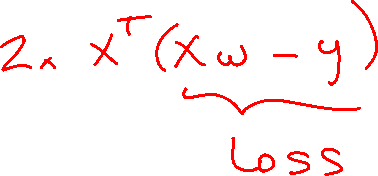 2x X^T (Xω - y)
Loss